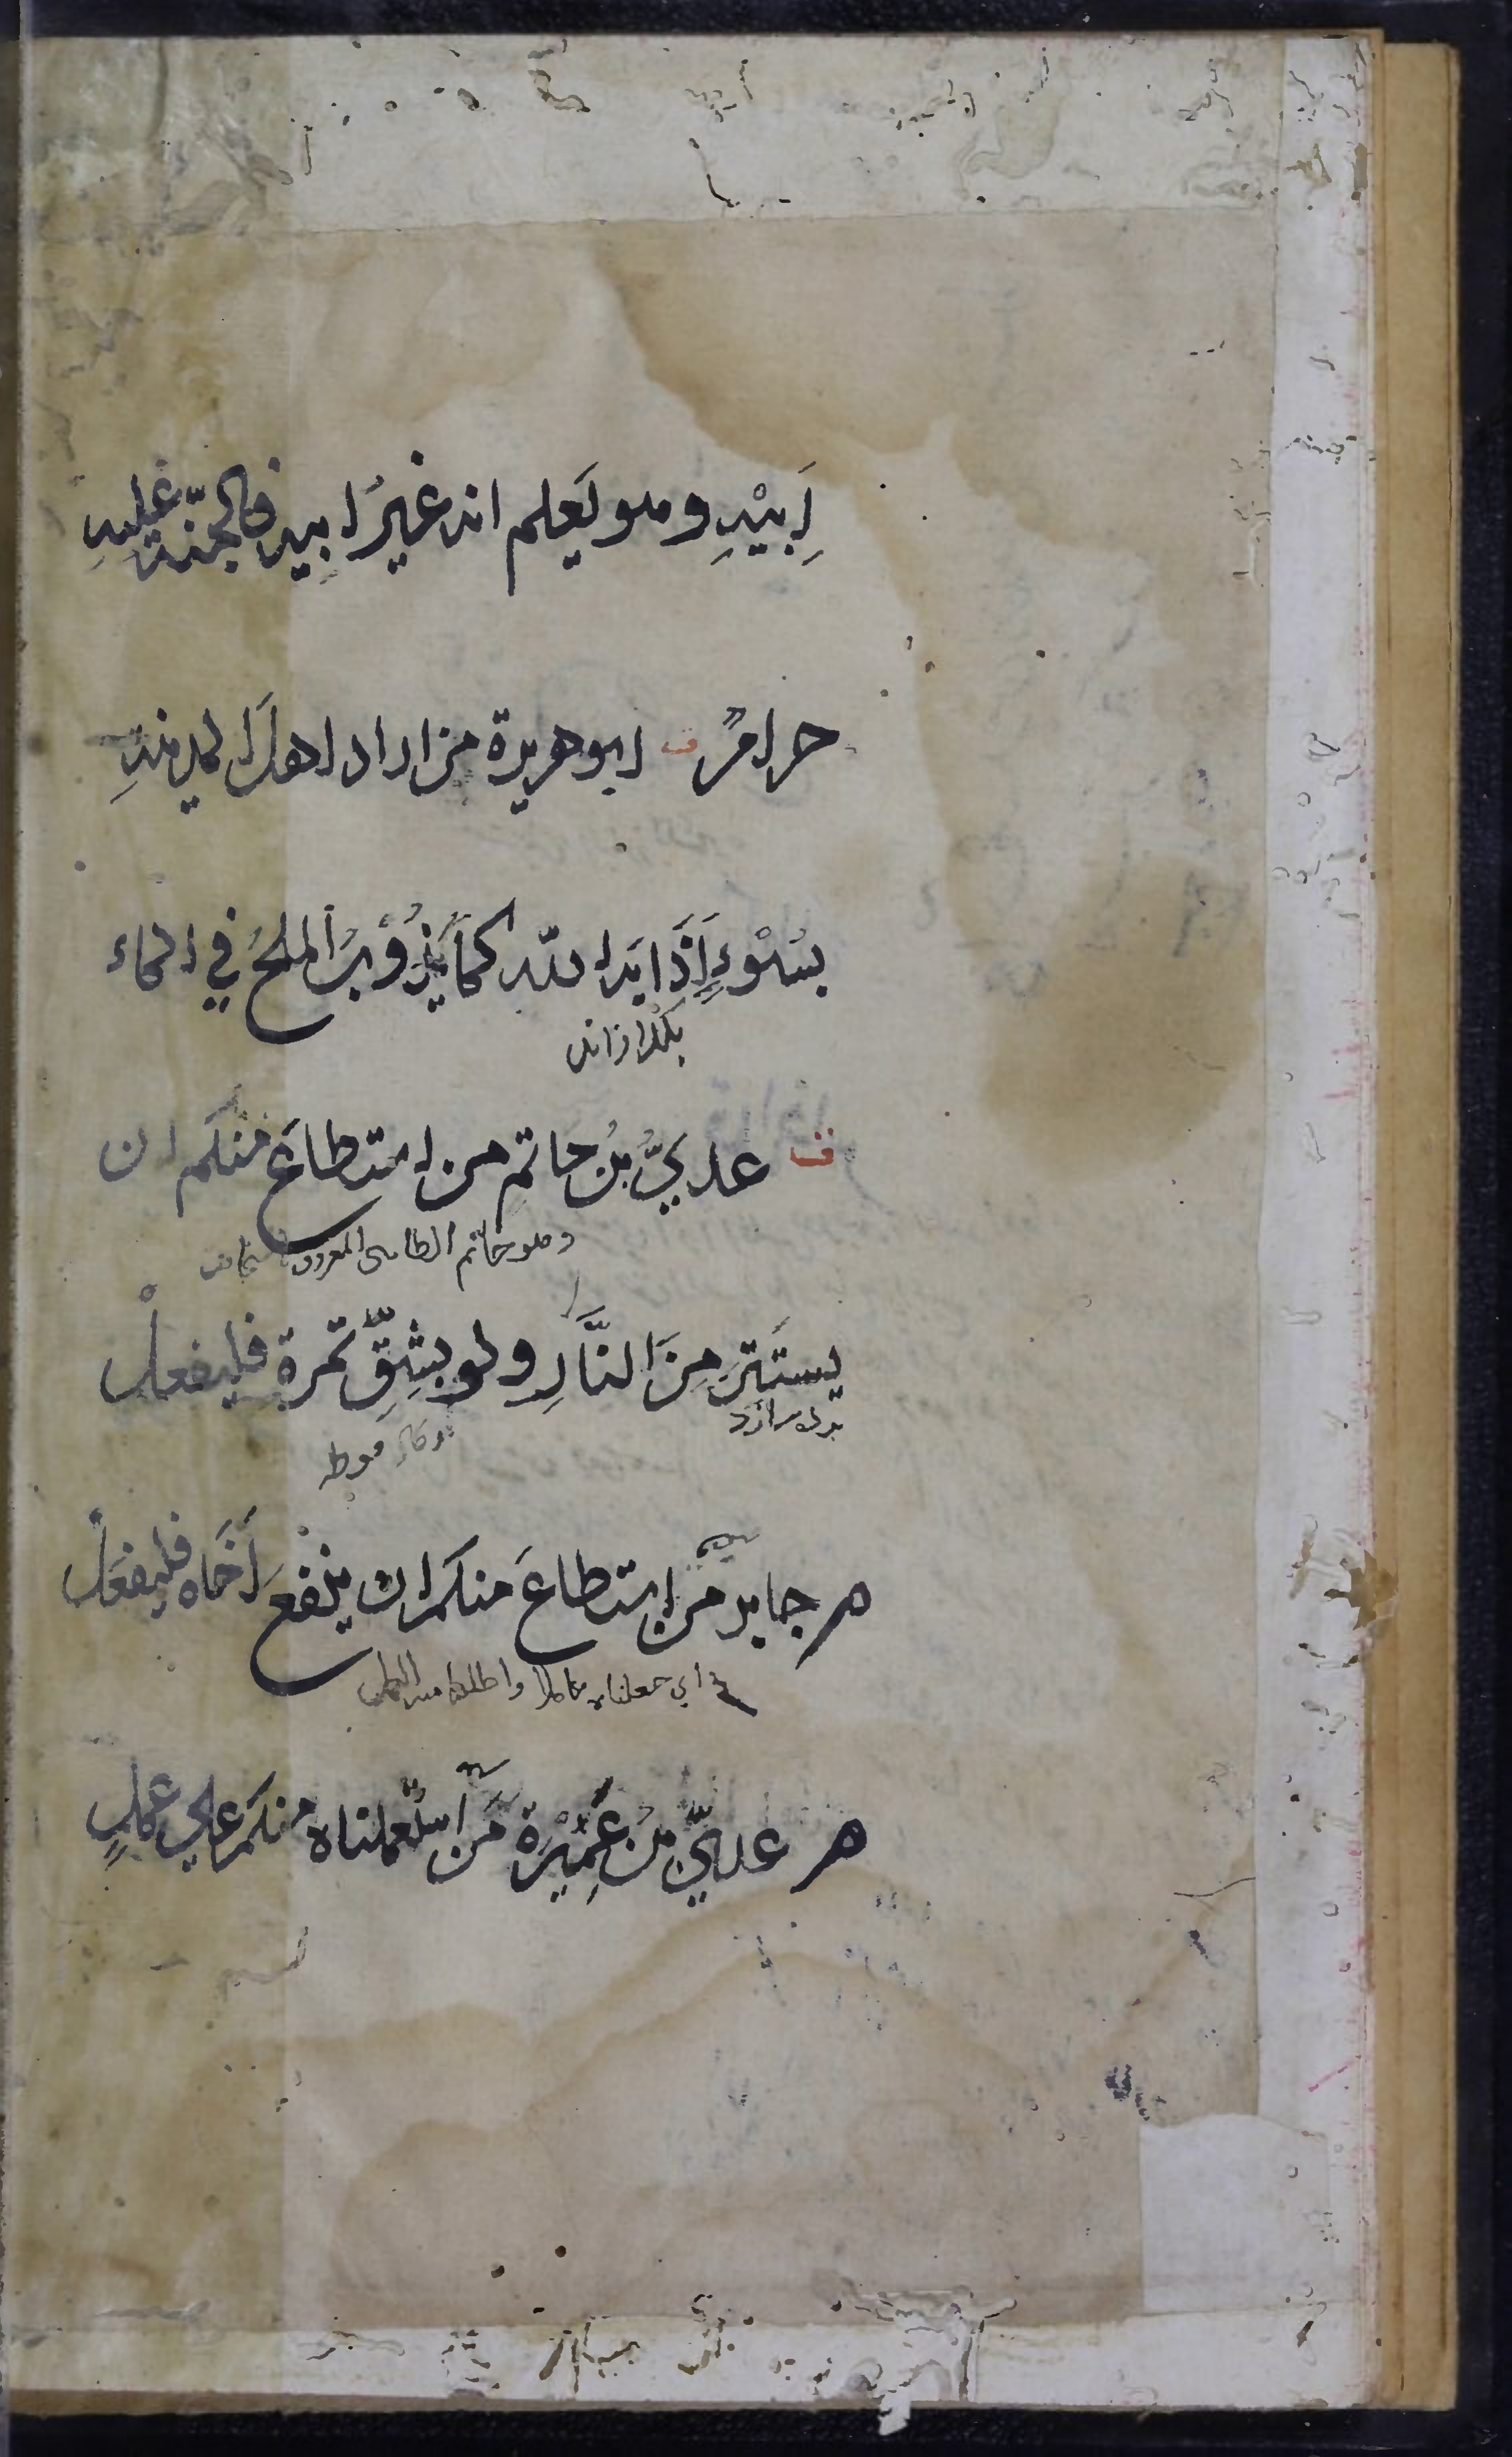 اَبِيْهِ وهو يَعلم انه غيرُ ابيه فالجنّة عليهِ
حرامٌ ف ابو هريرة من اراد اهلَ المدينةِ
بسُوْءٍ اَذَابَه الله كما يَذُوْبُ الملحُ في الماء
بكدازاند
ف عديُّ بنُ حاتمٍ من استطاعَ منكم ان
وهو حاتم الطاىى المعروف
يستَتِرَ مِنَ النَّارِ ولو بِشِقِّ تمرة فليفعلْ
م جابر من استطاعَ منكم ان ينفعَ اَخَاه فليفعَلْ
اي جعلناه عاملا
م عديّ بن عَمِيْرَة مَن استَعملناه منكم علي عملٍ